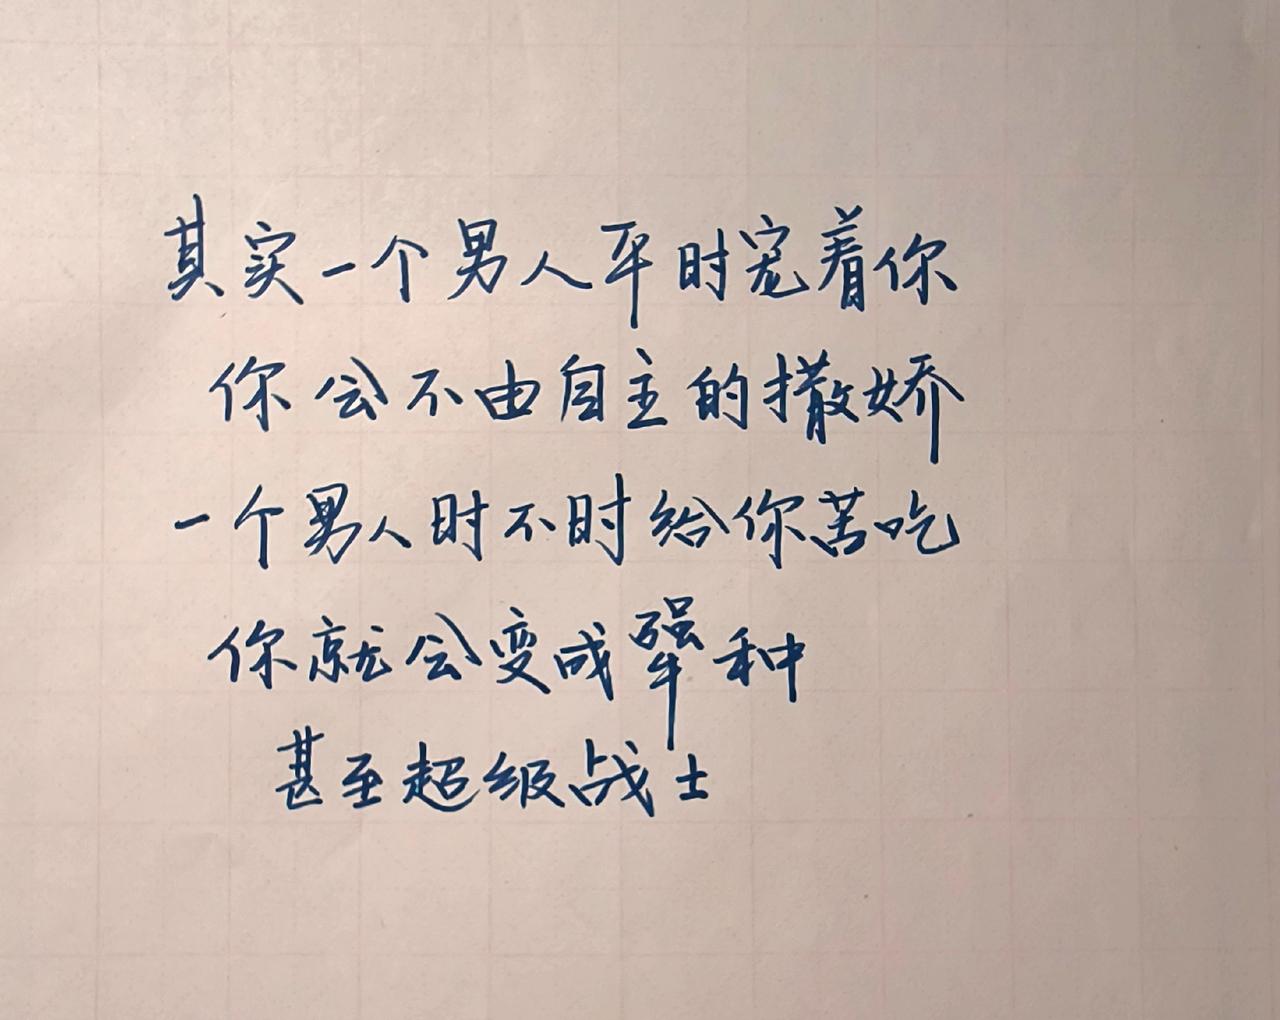 其实一个男人平时宠着你
你会不由自主的撒娇
一个男人时不时给你苦吃
你就会变成犟种
甚至超级战士